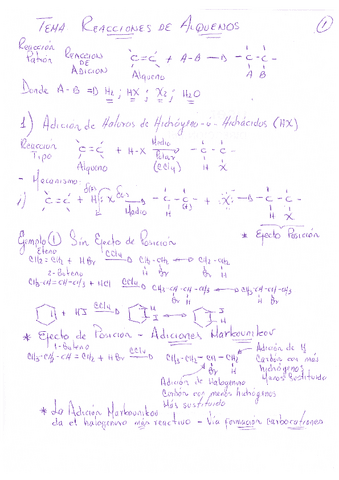 TEMA REACCIONES DE ALQUENOS 1
Reacción Patrón REACCION DE ADICION C=C + A-B → -C-C-
Alqueno A B
Donde A-B ⇒ H2 ; HX ; X2 ; H2O
1) Adición de Haluros de Hidrógeno -ó- Hidrácidos (HX)
Reacción Tipo C=C + H-X Medio Polar (CCl4) → -C-C-
Alqueno H X
- Mecanismo:
i) C=C + H:X Medio → -C-C- + :X: → -C-C-
H H X
Ejemplo 1 Sin Efecto de Posición * Efecto Posición
Eteno
CH2=CH2 + HBr CCl4 → CH2-CH2 → CH2-CH2
H Br Br H
2-Buteno
CH3-CH=CH-CH3 + HCl CCl4 → CH3-CH-CH-CH3 → CH3-CH-CH-CH3
+ HI CCl4 → H I → I H
* Efecto de Posición - Adiciones Markounikov
1-Buteno
CH3-CH2-CH=CH2 + HBr CCl4 → CH3-CH2-CH-CH2
Br H
Adición de H
Carbón con más
hidrógenos
Menos Sustituido
Adición de Halógeno
Carbón con menos hidrógenos
Más sustituido
* La Adición Markounikov
da el halogenuro más reactivo - Vía formación carbocationes